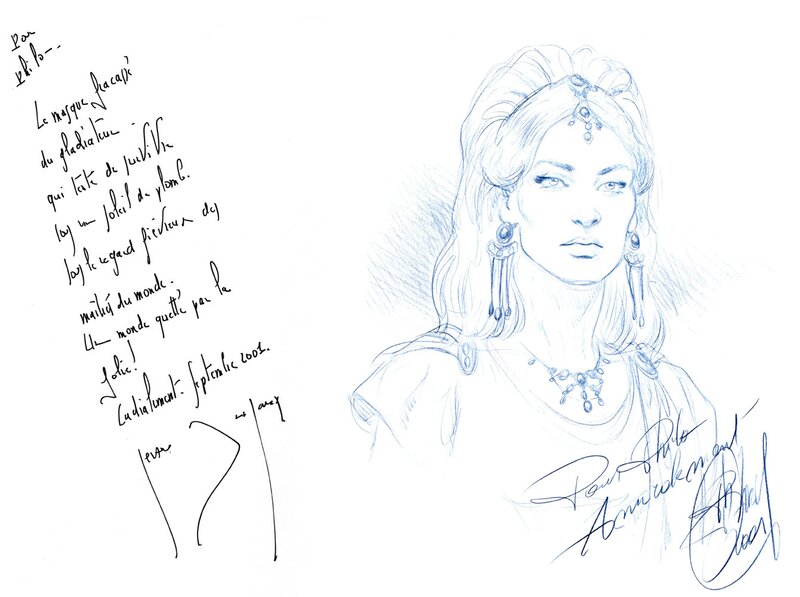 Pour
Philo-.
Le masque fracassé
du gladiateur -
qui tente de survivre
sous un soleil de plomb.
sous le regard fiévreux des
maîtres du monde.
Un monde guetté par la
folie!
Cordialement. Septembre 2001.
Pour Philo
Amicalement